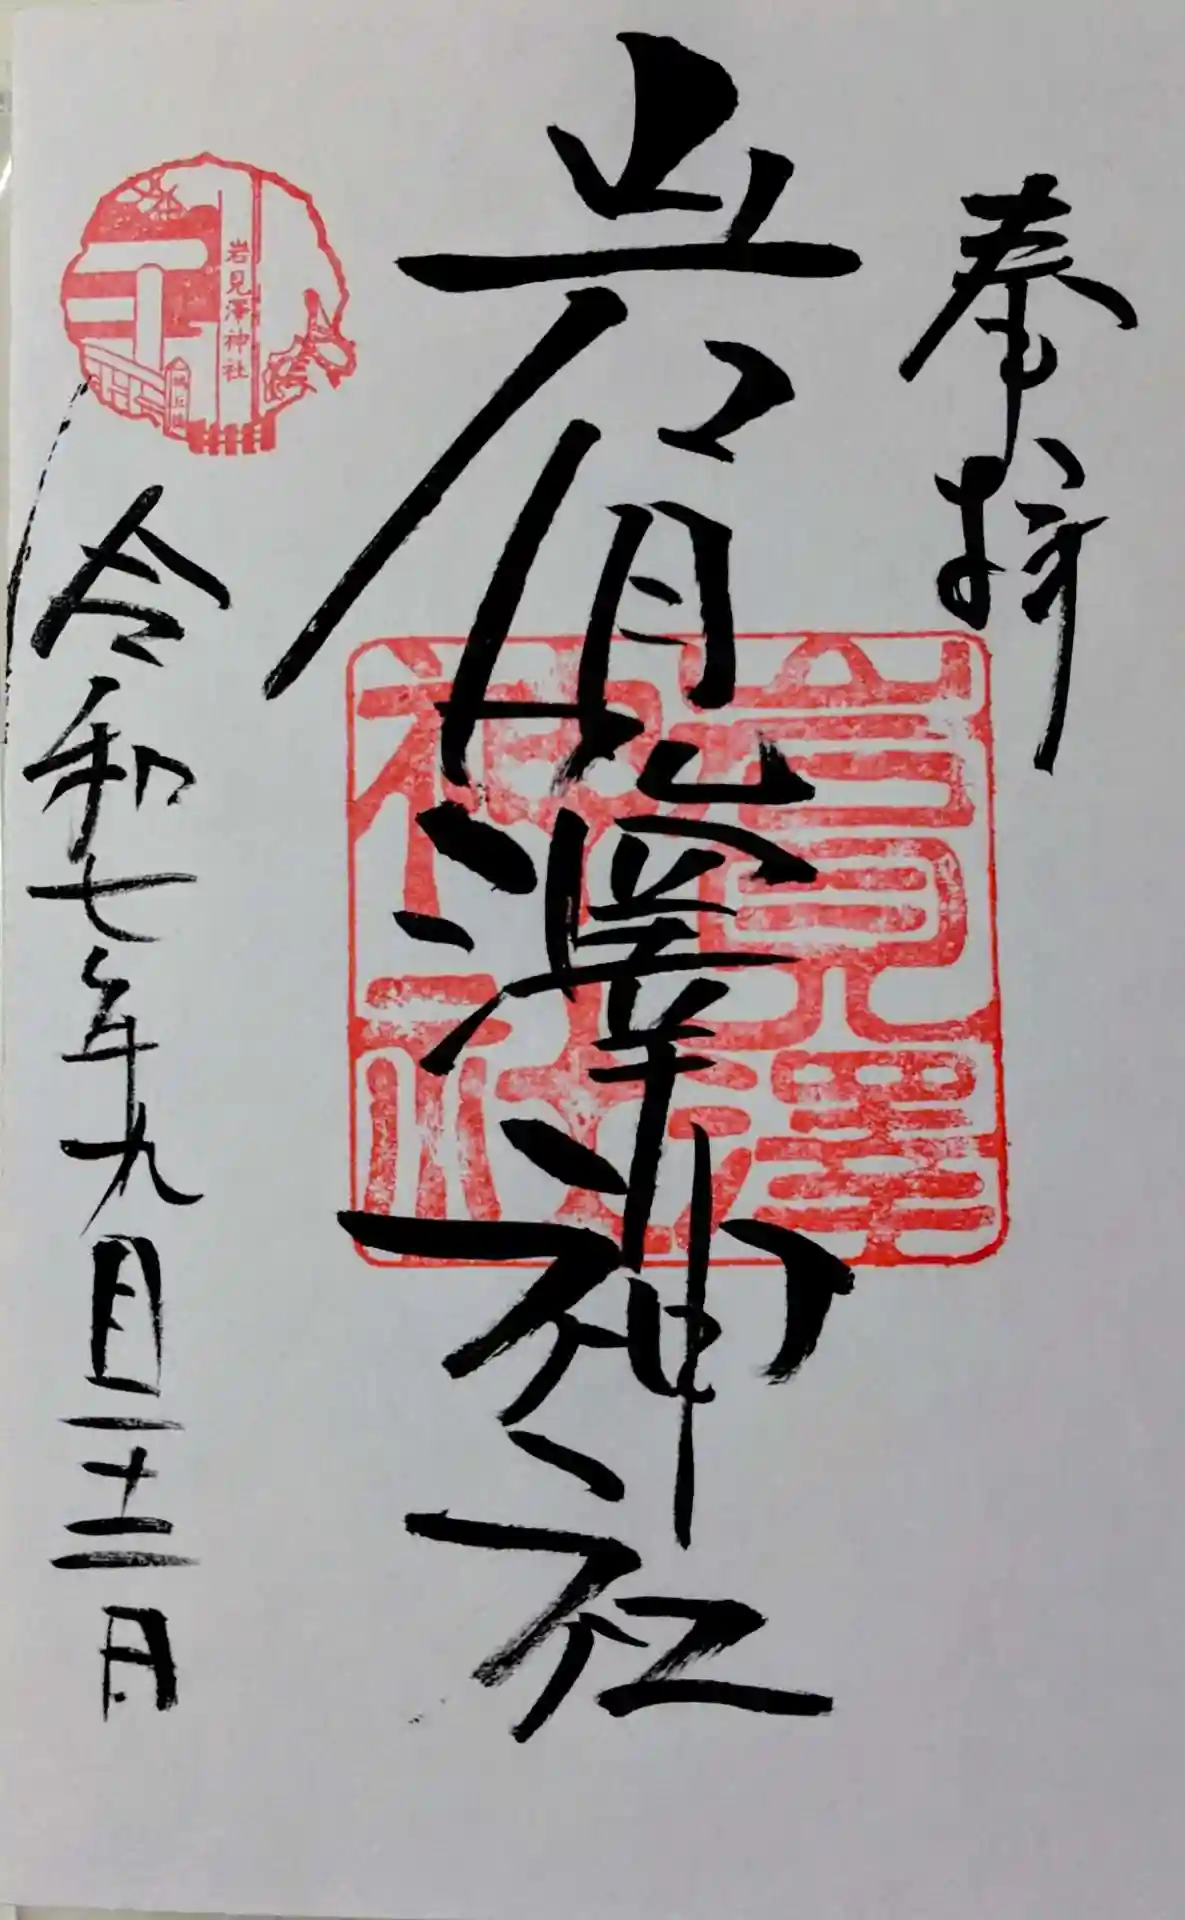 奉拝
岩見澤神社
岩見澤
神社
岩見澤神社
令和七年九月二十二日